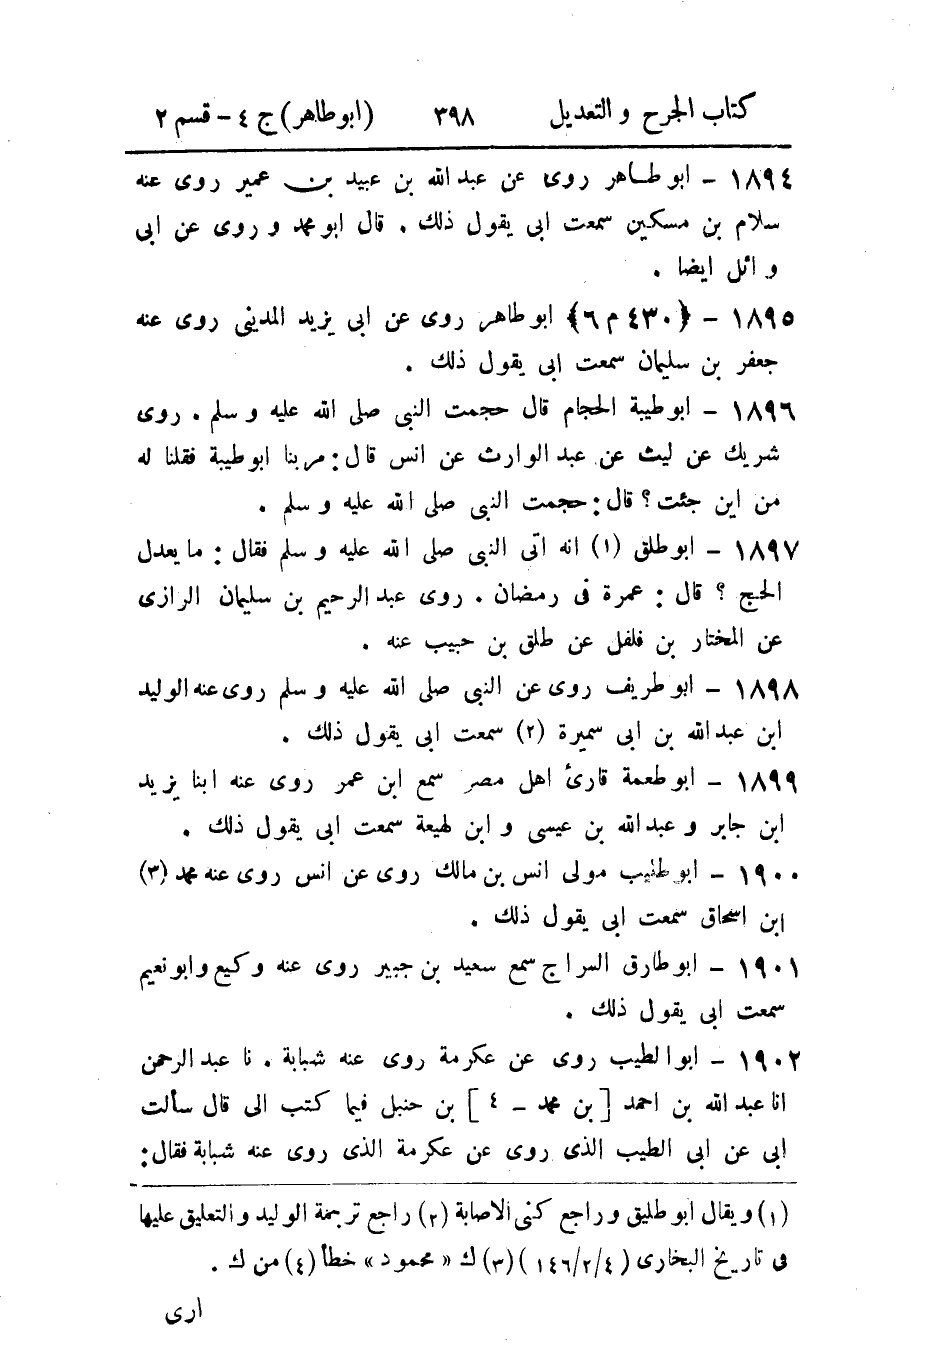 كتاب الجرح و التعديل ٣٩٨ (ابو طاهر) ج ٤ - قسم ٢
١٨٩٤ - ابو طاهر روى عن عبد الله بن عبيد بن عمير روى عنه
سلام بن مسكين سمعت ابى يقول ذلك . قال ابو محمد و روى عن ابى
و ائل ايضا .
١٨٩٥ - ﴿٤٣٠ م ٦﴾ ابو طاهر روى عن ابى يزيد المدينى روى عنه
جعفر بن سليمان سمعت ابى يقول ذلك .
١٨٩٦ - ابو طيبة الحجام قال حجمت النبى صلى الله عليه و سلم . روى
شريك عن ليث عن عبد الوارث عن انس قال : مر بنا ابو طيبة فقلنا له
من اين جئت ؟ قال : حجمت النبى صلى الله عليه و سلم .
١٨٩٧ - ابو طلق (١) انه اتى النبى صلى الله عليه و سلم فقال : ما يعدل
الحج ؟ قال : عمرة فى رمضان . روى عبد الرحيم بن سليمان الرازى
عن المختار بن فلفل عن طلق بن حبيب عنه .
١٨٩٨ - ابو طريف روى عن النبى صلى الله عليه و سلم روى عنه الوليد
ابن عبد الله بن ابى سميرة (٢) سمعت ابى يقول ذلك .
١٨٩٩ - ابو طعمة قارئ اهل مصر سمع ابن عمر روى عنه ابنا يزيد
ابن جابر و عبد الله بن عيسى و ابن لهيعة سمعت ابى يقول ذلك .
١٩٠٠ - ابو طنيب مولى انس بن مالك روى عن انس روى عنه محمد (٣)
ابن اسحاق سمعت ابى يقول ذلك .
١٩٠١ - ابو طارق السراج سمع سعيد بن جبير روى عنه وكيع و ابو نعيم
سمعت ابى يقول ذلك .
١٩٠٢ - ابو الطيب روى عن عكرمة روى عنه شبابة . نا عبد الرحمن
انا عبد الله بن احمد [ بن محمد - ٤ ] بن حنبل فيما كتب الى قال سألت
ابى عن ابى الطيب الذى روى عن عكرمة الذى روى عنه شبابة فقال :
(١) و يقال ابو طليق و راجع كنى الاصابة (٢) راجع ترجمة الوليد و التعليق عليها
فى تاريخ البخارى (١٤٦/٢/٤) (٣) ك « محمود » خطأ (٤) من ك .
ارى